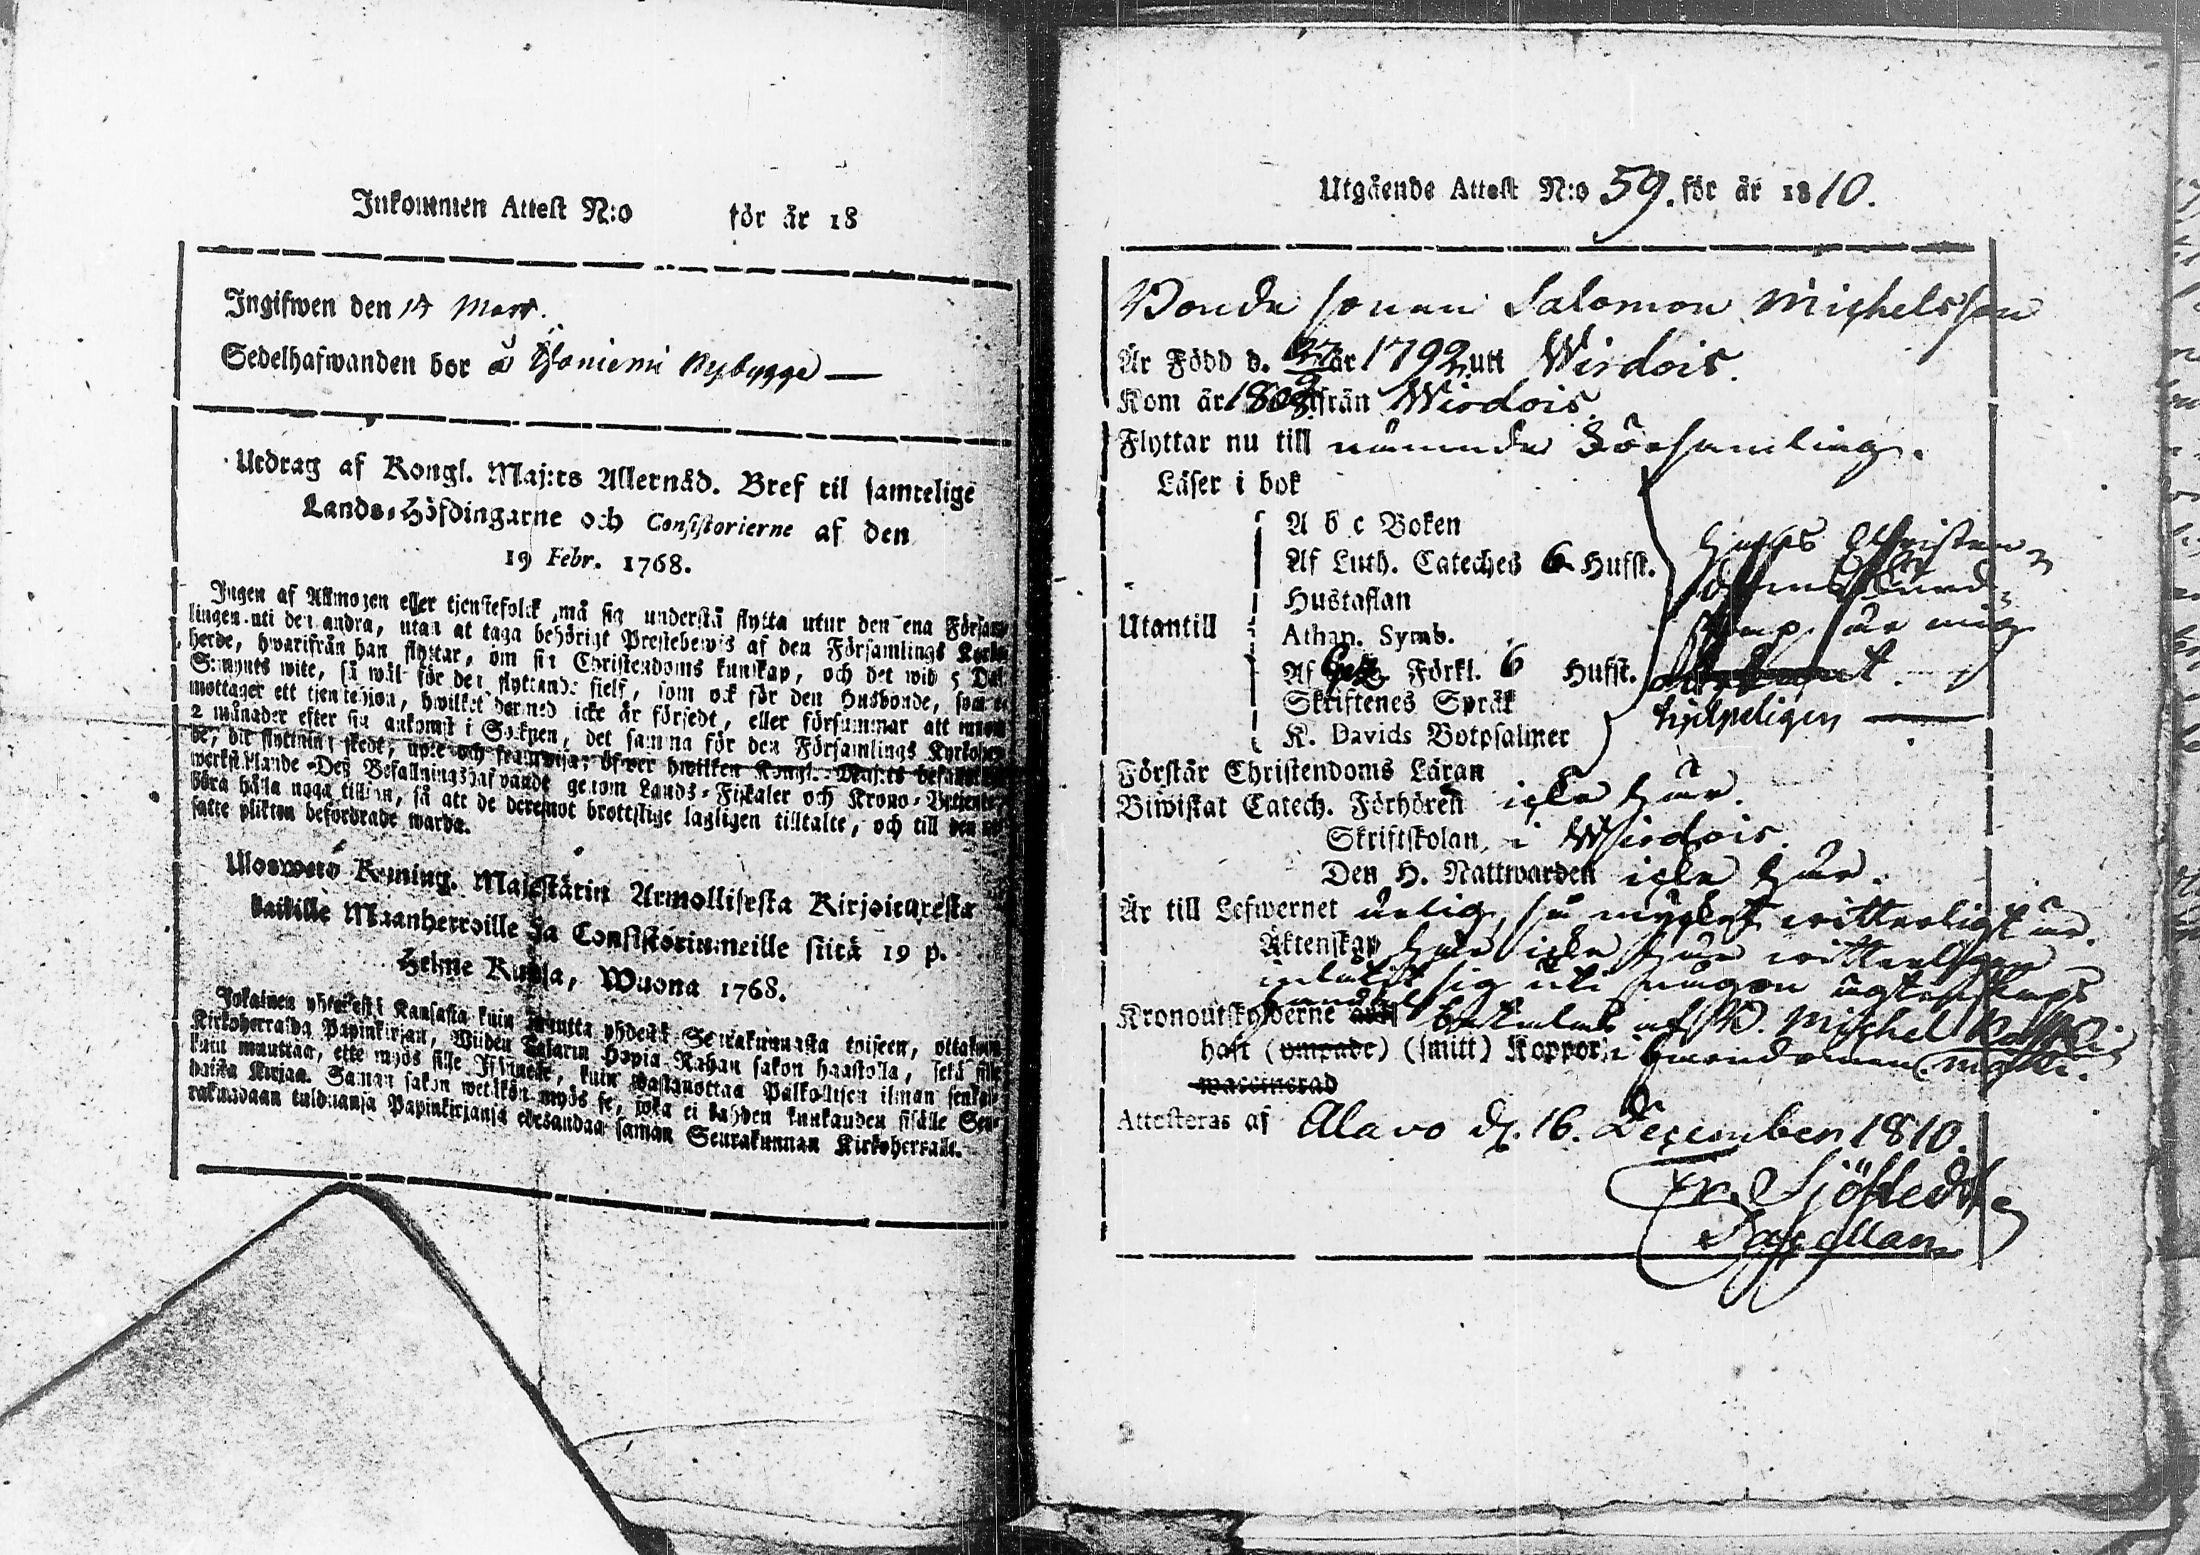 Inkommen Attest N:o för år 18
Ingifwen den 14 Mart.
Sedelhafwanden bor å Nybygge
Utdrag af Kongl. Maj:ts Allernåd. Bref til samtelige
Lands-Höfdingarne och Consistorierne af den
19 Febr. 1768.
Ingen af Allmogen eller tjenstefolck må sig understå flytta utur den ena Försam-
lingen uti den andra, utan at taga behörigt Prestebewis af den Församlings Kyrko-
herde, hwarifrån han flyttar, om sin Christendoms kunskap, och det wid 5 Dal.
S:mynts wite, så wäl för den flyttande sielf, som ock för den Husbonde, som
mottager ett tjenstehjon, hwilket dermed icke är försedt, eller försummar att innom
2 månader efter sin ankomst i Socknen, det samma för den Församlings Kyrkoher-
de, dit flyttning skedt, upte och framwisa; öfwer hwilken Kongl. Maj:ts befallning
werkställande Deß Befallningshafwande genom Lands-Fiskaler och Krono-Betjente,
böra hålla noga tillsyn, så att de deremot brottslige lagligen tilltalte, och till den ut-
satte plikten befordrade warda.
Uloswetö Kuning. Majestätin Armollisesta Kirjoituxesta
kaikille Maanherroille ja Consistoriumeille siitä 19 p.
Helme Kuusa, Wuona 1768.
Jokainen yhteisestä Kansasta kuin muutta yhdestä Seurakunnasta toiseen, ottakoon
Kirkoherralda Papinkirjan, Wiiden Talarin Hopia Rahan sakon haastolla, sekä sille
kuin muuttaa, ette myös sille Isännälle, kuin wastanottaa Palkollisen ilman senkal-
taista Kirjaa. Saman sakon wetäkön myös se, joka ei kahden kuukauden sisälle Seu-
rakundaan tulduansa Papinkirjansa edesandaa saman Seurakunnan Kirkoherralle.
Utgående Attest N:o 59. för år 1810.
Bonde sonen Salomon Michelsson
Är Född d. 27 år 1792 uti Wirdois.
Kom år 1809 ifrån Wirdois
Flyttar nu till nämnda Församling.
Läser i bok
A b c Boken
Af Luth. Cateches 6 Hufst.
Hustaflan
Utantill
Athan. Symb.
Af Förkl. 6 Hufst.
Skriftenes Språk
K. Davids Botpsalmer
hans Christen-
doms kund-
skap är mig
hjelpeligen
Förstår Christendoms Läran
Biwistat Catech. Förhören icke här.
Skriftskolan i Wirdois.
Den H. Nattwarden icke här.
Är till Lefwernet ärlig, så mycket witterligt är.
Äktenskap har icke här witterligen
inlåtit sig uti någon ägtenskaps
handel
Kronoutskylderne betalas af B. Michel
haft (ympade) (smitt) Koppor i barndomen
waccinerad
Attesteras af Alavo d. 16. December 1810.
Er. Sjöstedt
Sacellan